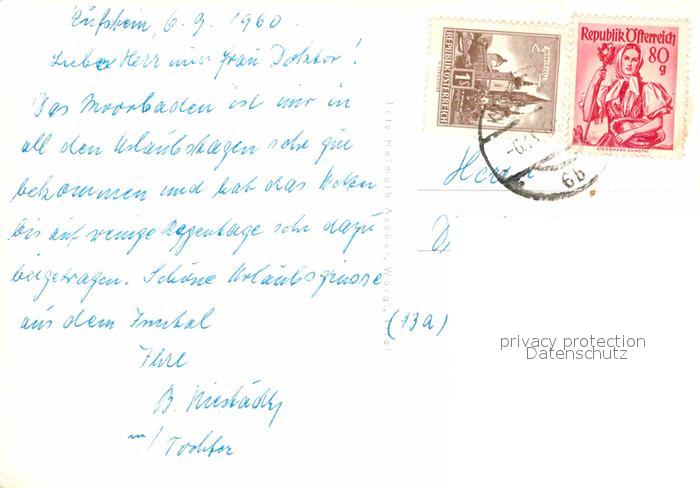 Kufstein, 6.9. 1960.
Lieber Herr und Frau Doktor!
Das Moorbaden ist mir in
all den Urlaubstagen sehr gut
bekommen und hat das Wetter
bis auf wenige Regentage sehr dazu
beigetragen. Schöne Urlaubsgrüsse
aus dem Inntal
Ihre
B.
u/ Tochter
Foto Helmuth Ascher, Wörgl, Tirol
REPUBLIK ÖSTERREICH
1S
Republik Österreich
80
g
6b
Herrn
D
(13a)
privacy protection
Datenschutz